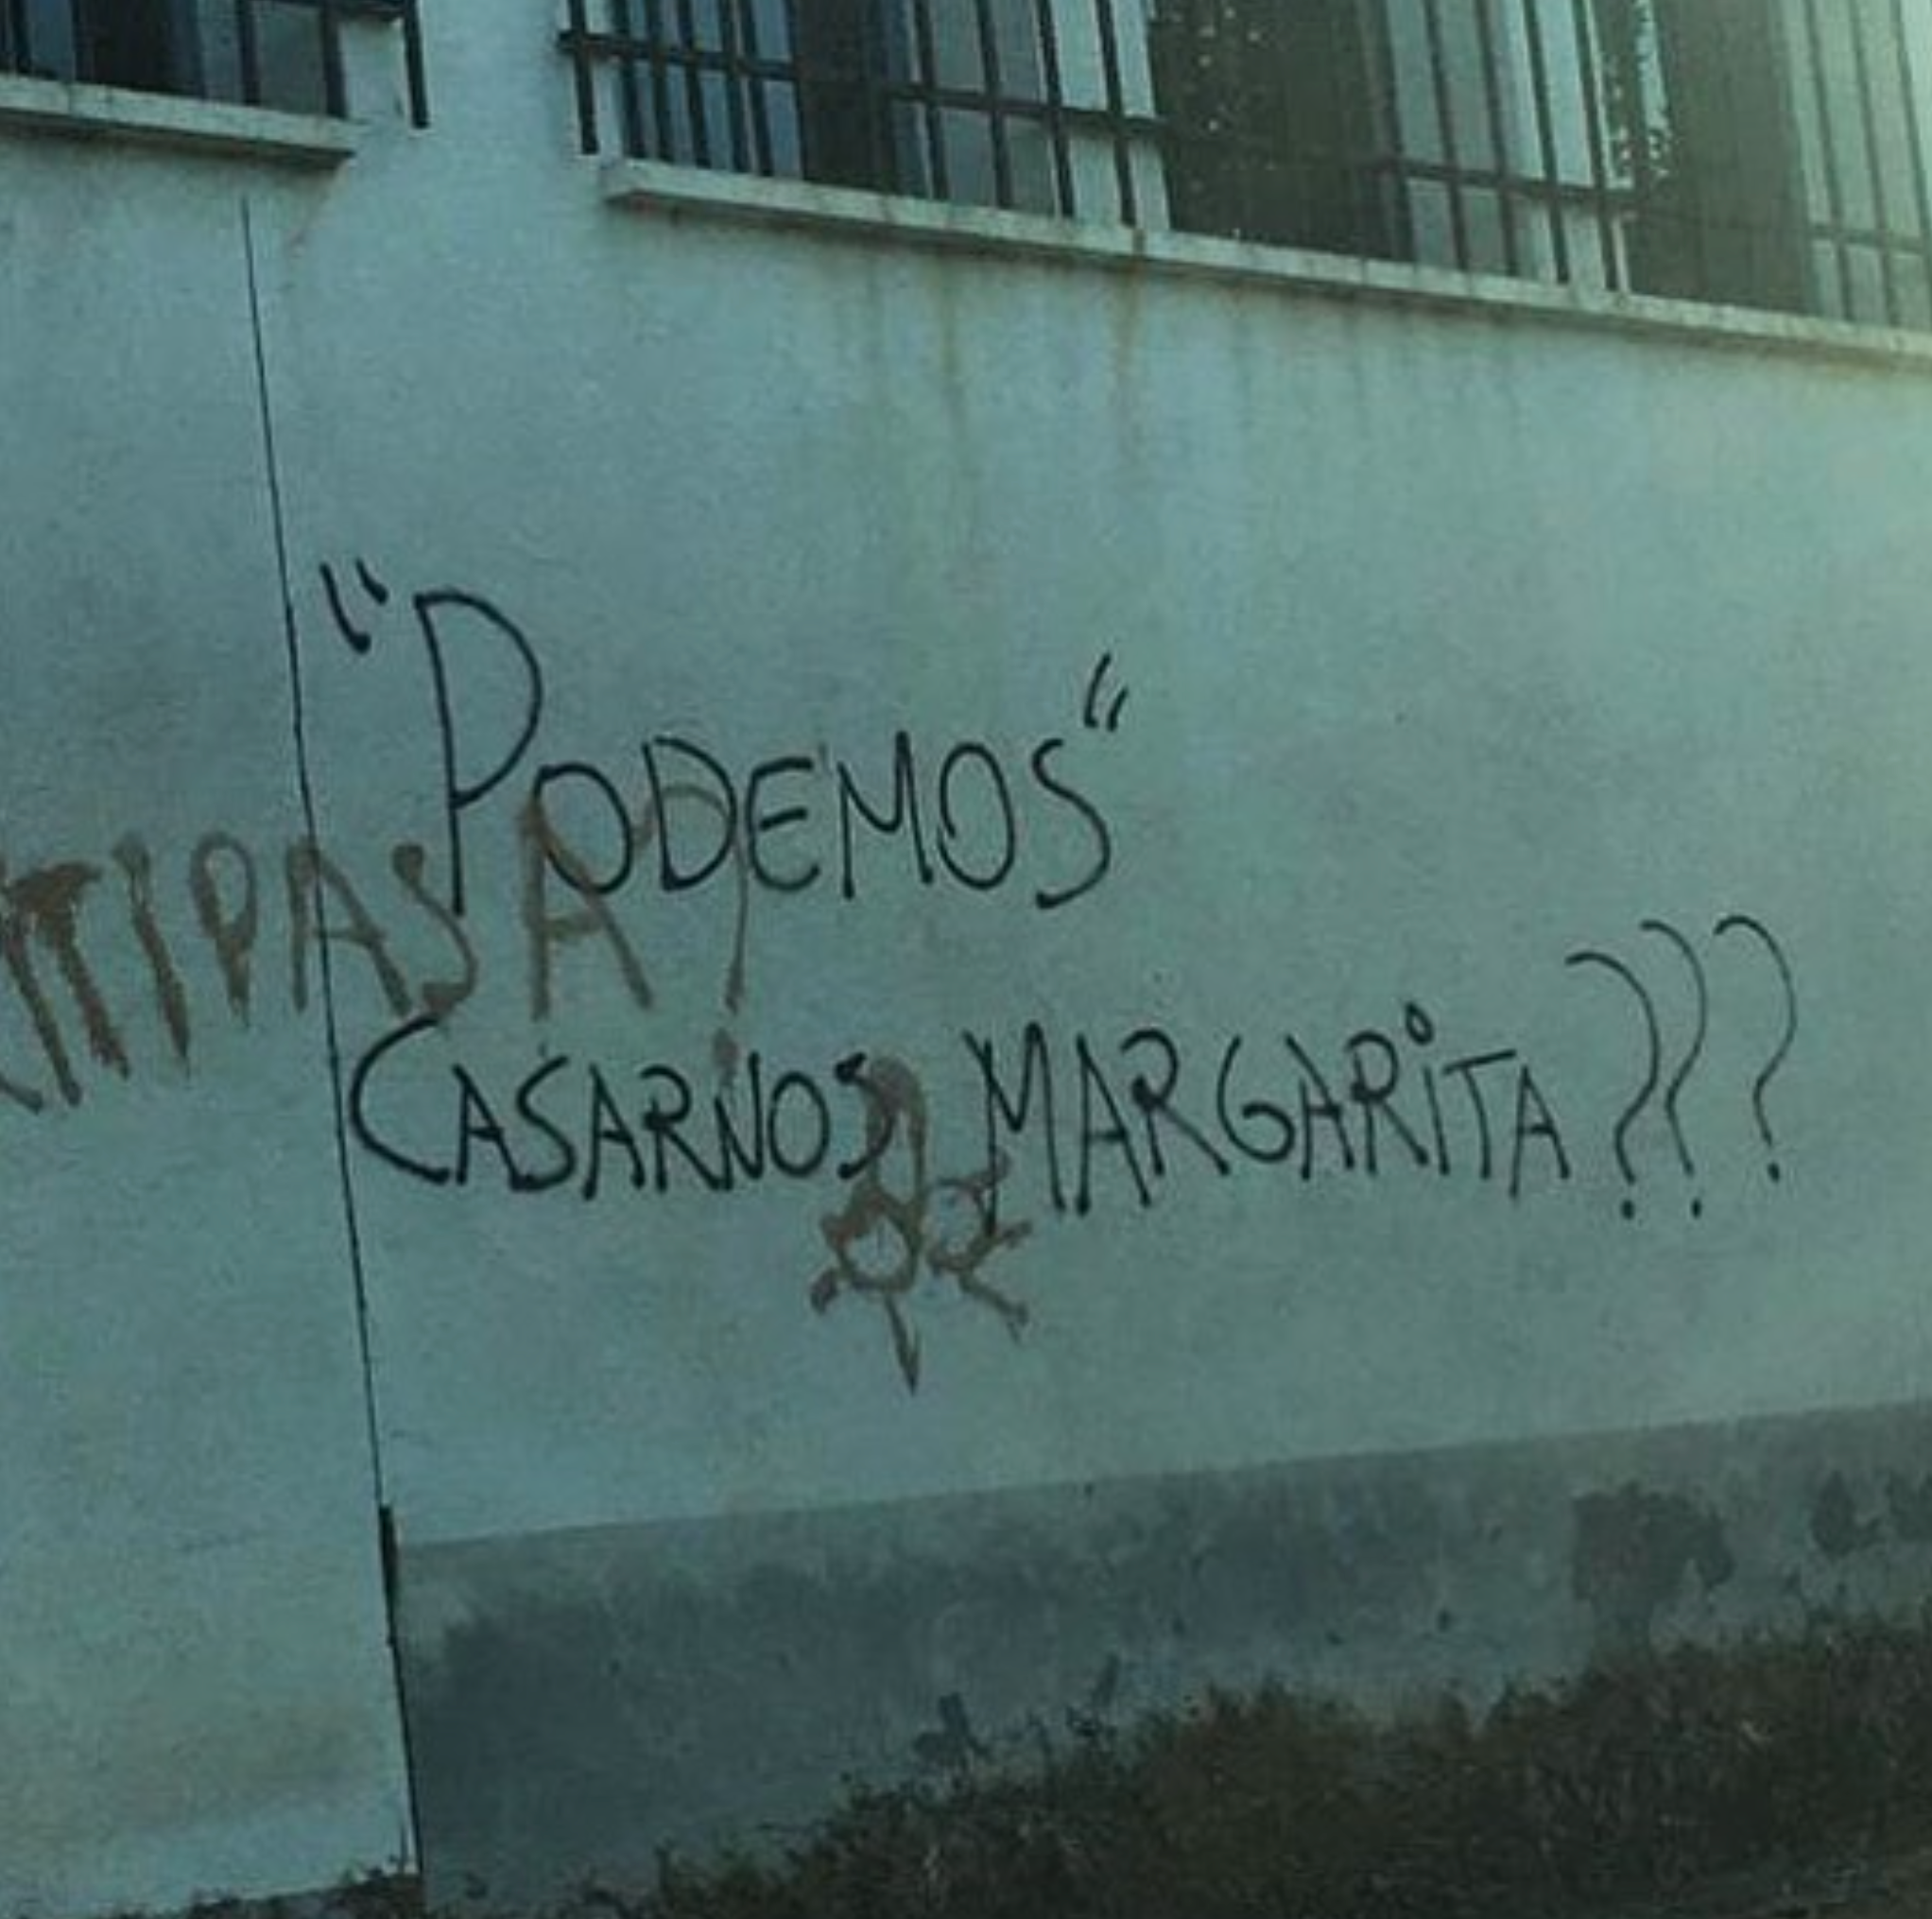 "PODEMOS"
CASARNOS MARGARiTA???